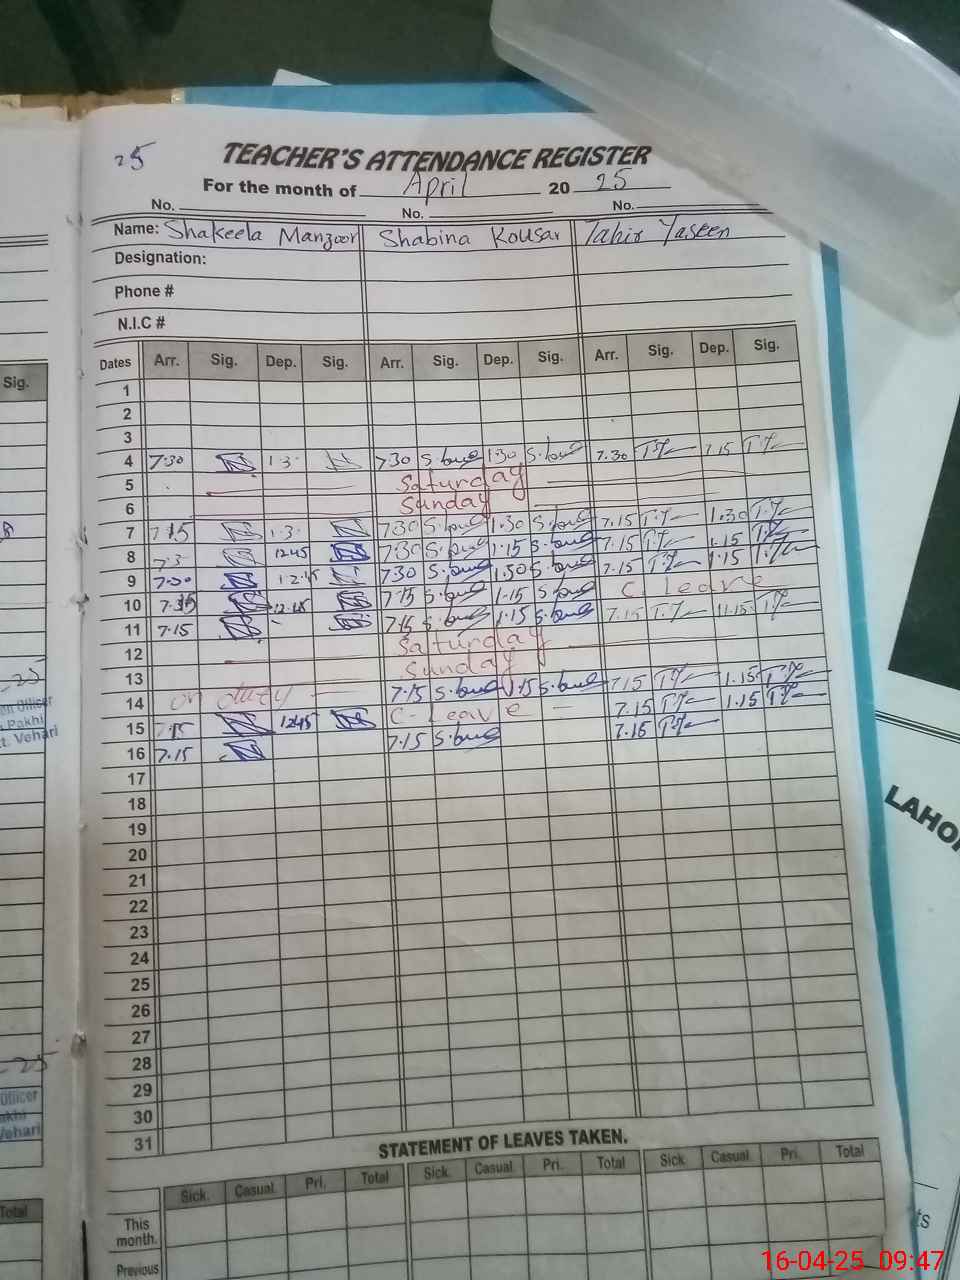 25
TEACHER'S ATTENDANCE REGISTER
For the month of April 20 25
No. No. No.
Name: Shakeela Manzoor Shabina Kousar Tahir Yaseen
Designation:
Phone #
N.I.C #
Dates Arr. Sig. Dep. Sig. Arr. Sig. Dep. Sig. Arr. Sig. Dep. Sig.
Sig.
1
2
3
4 7.30 1.3 7.30 1.30 7.30 7.15
5 Saturday
6 Sunday
7 7.15 1.3 7.30 1.30 7.15 1.30
8 7.3 1245 7.30 1.15 7.15 1.15
9 7.30 12.15 7.30 1.30 7.15 1.15
10 12.45 7.15 1.15 C. leave
11 7.15 7.15 1.15 7.15 1.15
12 Saturday
13 Sunday
14 on duty 7.15 1.15 7.15 1.15
15 7.15 1245 C- Leave 7.15 1.15
16 7.15 7.15 7.15
17
18
19
20
21
22
23
24
25
26
27
28
29
30
31
-25
Officer
Pakhi
Vehari
-25
Officer
akhi
Vehari
STATEMENT OF LEAVES TAKEN.
Sick. Casual. Pri. Total Sick. Casual. Pri. Total Sick. Casual. Pri. Total
This month.
Previous
Total
LAHOR
ts
16-04-25 09:47